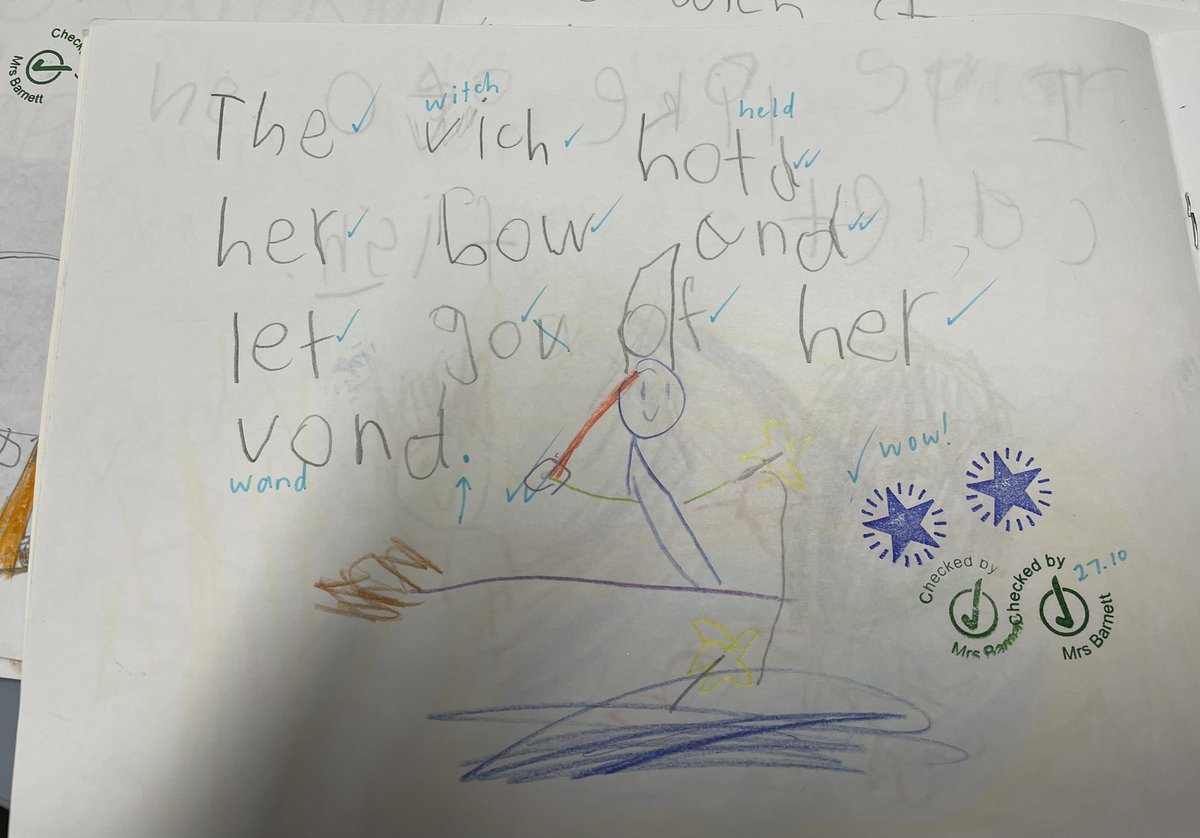 witch held
The vich hotd
her bow and
let gox of her
vond.
wand
wow!
Checked by
Mrs Barnett
Checked by
Mrs Barnett
27.10
Mrs Barnett